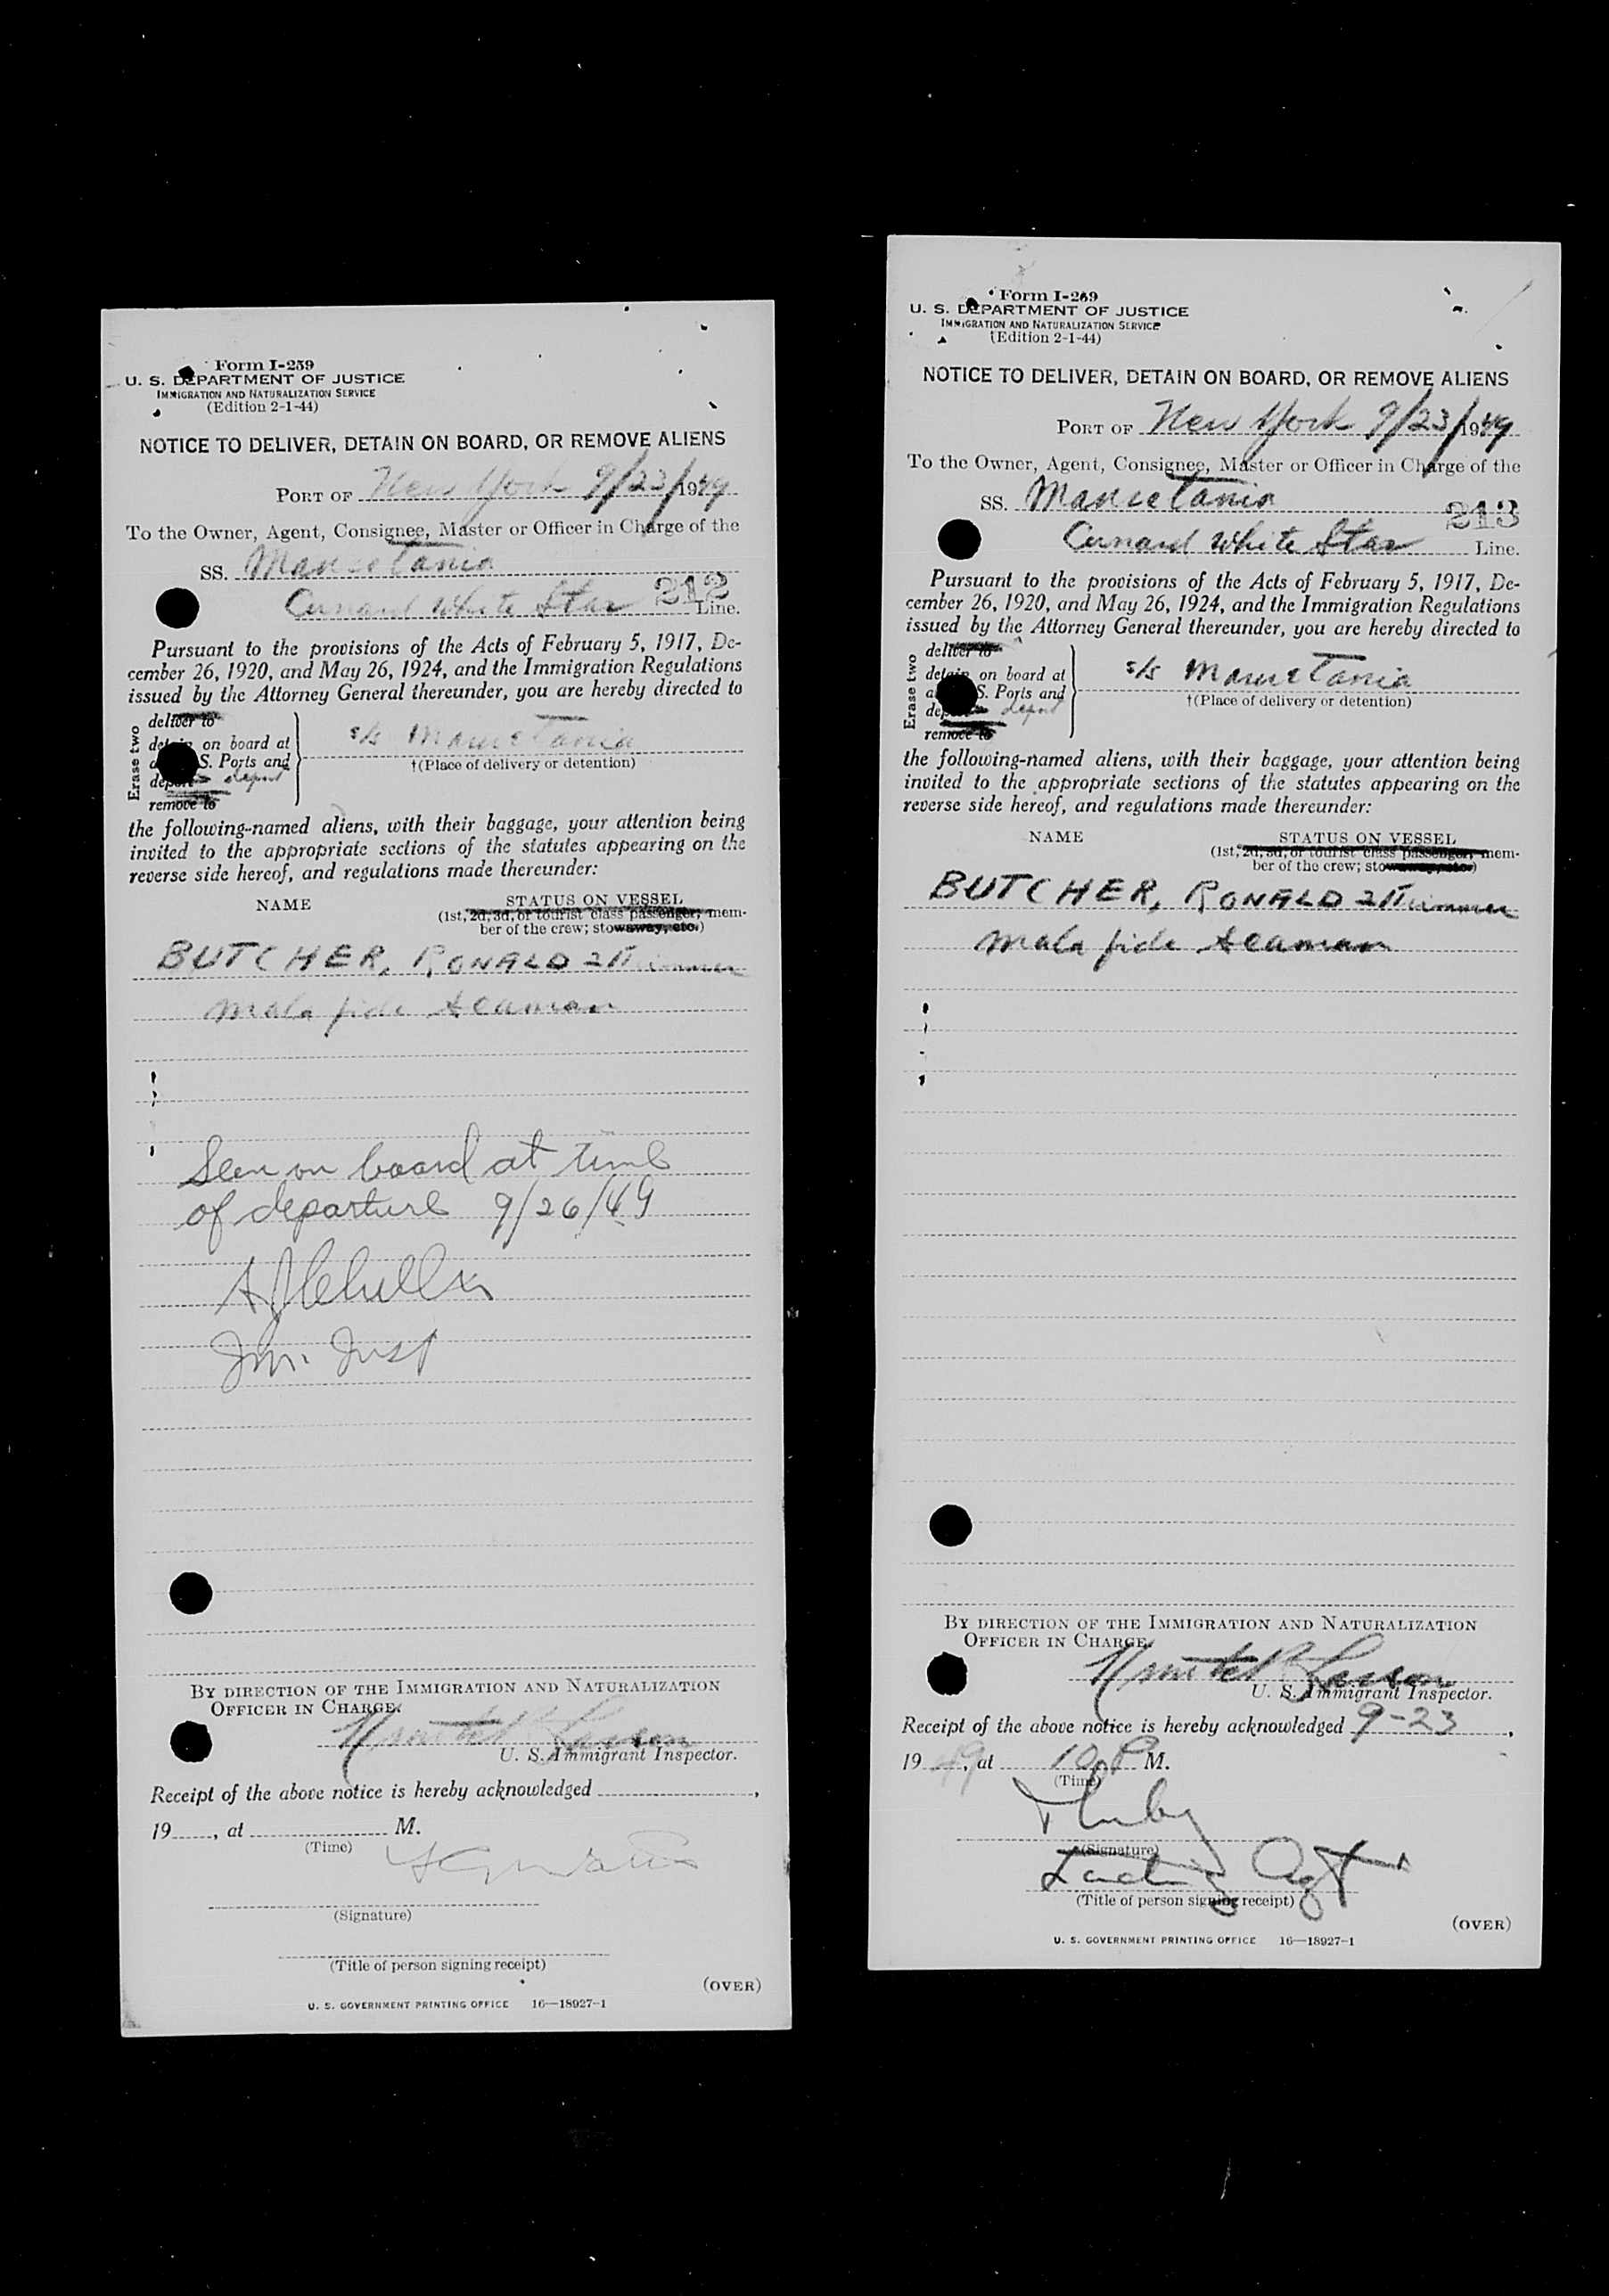 Form I-259
U. S. DEPARTMENT OF JUSTICE
IMMIGRATION AND NATURALIZATION SERVICE
(Edition 2-1-44)
NOTICE TO DELIVER, DETAIN ON BOARD, OR REMOVE ALIENS
PORT OF New York 9/23/1949
To the Owner, Agent, Consignee, Master or Officer in Charge of the
SS. Mauretania
212
Cunard White Star Line.
Pursuant to the provisions of the Acts of February 5, 1917, De-
cember 26, 1920, and May 26, 1924, and the Immigration Regulations
issued by the Attorney General thereunder, you are hereby directed to
Erase two
deliver to
detain on board at
S. Ports and
deport
remove to
s/s Mauretania
†(Place of delivery or detention)
the following-named aliens, with their baggage, your attention being
invited to the appropriate sections of the statutes appearing on the
reverse side hereof, and regulations made thereunder:
NAME STATUS ON VESSEL
(1st, 2d, 3d, or tourist class passenger; mem-
ber of the crew; stowaway, etc.)
BUTCHER, RONALD 21 Trimmer
mala fide seaman
Seen on board at time
of departure 9/26/49
Imm. Insp
BY DIRECTION OF THE IMMIGRATION AND NATURALIZATION
OFFICER IN CHARGE.
U. S. Immigrant Inspector.
Receipt of the above notice is hereby acknowledged
19 , at M.
(Time)
(Signature)
(Title of person signing receipt)
(OVER)
U. S. GOVERNMENT PRINTING OFFICE 16—18927-1
Form I-259
U. S. DEPARTMENT OF JUSTICE
IMMIGRATION AND NATURALIZATION SERVICE
(Edition 2-1-44)
NOTICE TO DELIVER, DETAIN ON BOARD, OR REMOVE ALIENS
PORT OF New York 9/23/1949
To the Owner, Agent, Consignee, Master or Officer in Charge of the
SS. Mauretania
213
Cunard White Star Line.
Pursuant to the provisions of the Acts of February 5, 1917, De-
cember 26, 1920, and May 26, 1924, and the Immigration Regulations
issued by the Attorney General thereunder, you are hereby directed to
Erase two
deliver to
detain on board at
S. Ports and
depart depart
remove to
s/s Mauretania
†(Place of delivery or detention)
the following-named aliens, with their baggage, your attention being
invited to the appropriate sections of the statutes appearing on the
reverse side hereof, and regulations made thereunder:
NAME STATUS ON VESSEL
(1st, 2d, 3d, or tourist class passenger; mem-
ber of the crew; stowaway, etc.)
BUTCHER, RONALD 21 Trimmer
mala fide seaman
BY DIRECTION OF THE IMMIGRATION AND NATURALIZATION
OFFICER IN CHARGE.
U. S. Immigrant Inspector.
Receipt of the above notice is hereby acknowledged 9-23,
1949, at 10 P M.
(Time)
(Signature)
Landing Agt
(Title of person signing receipt)
(OVER)
U. S. GOVERNMENT PRINTING OFFICE 16—18927-1